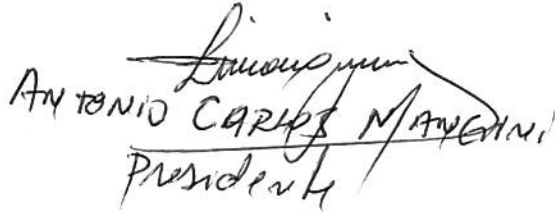 ANTONIO CARLOS MANGINI
Presidente